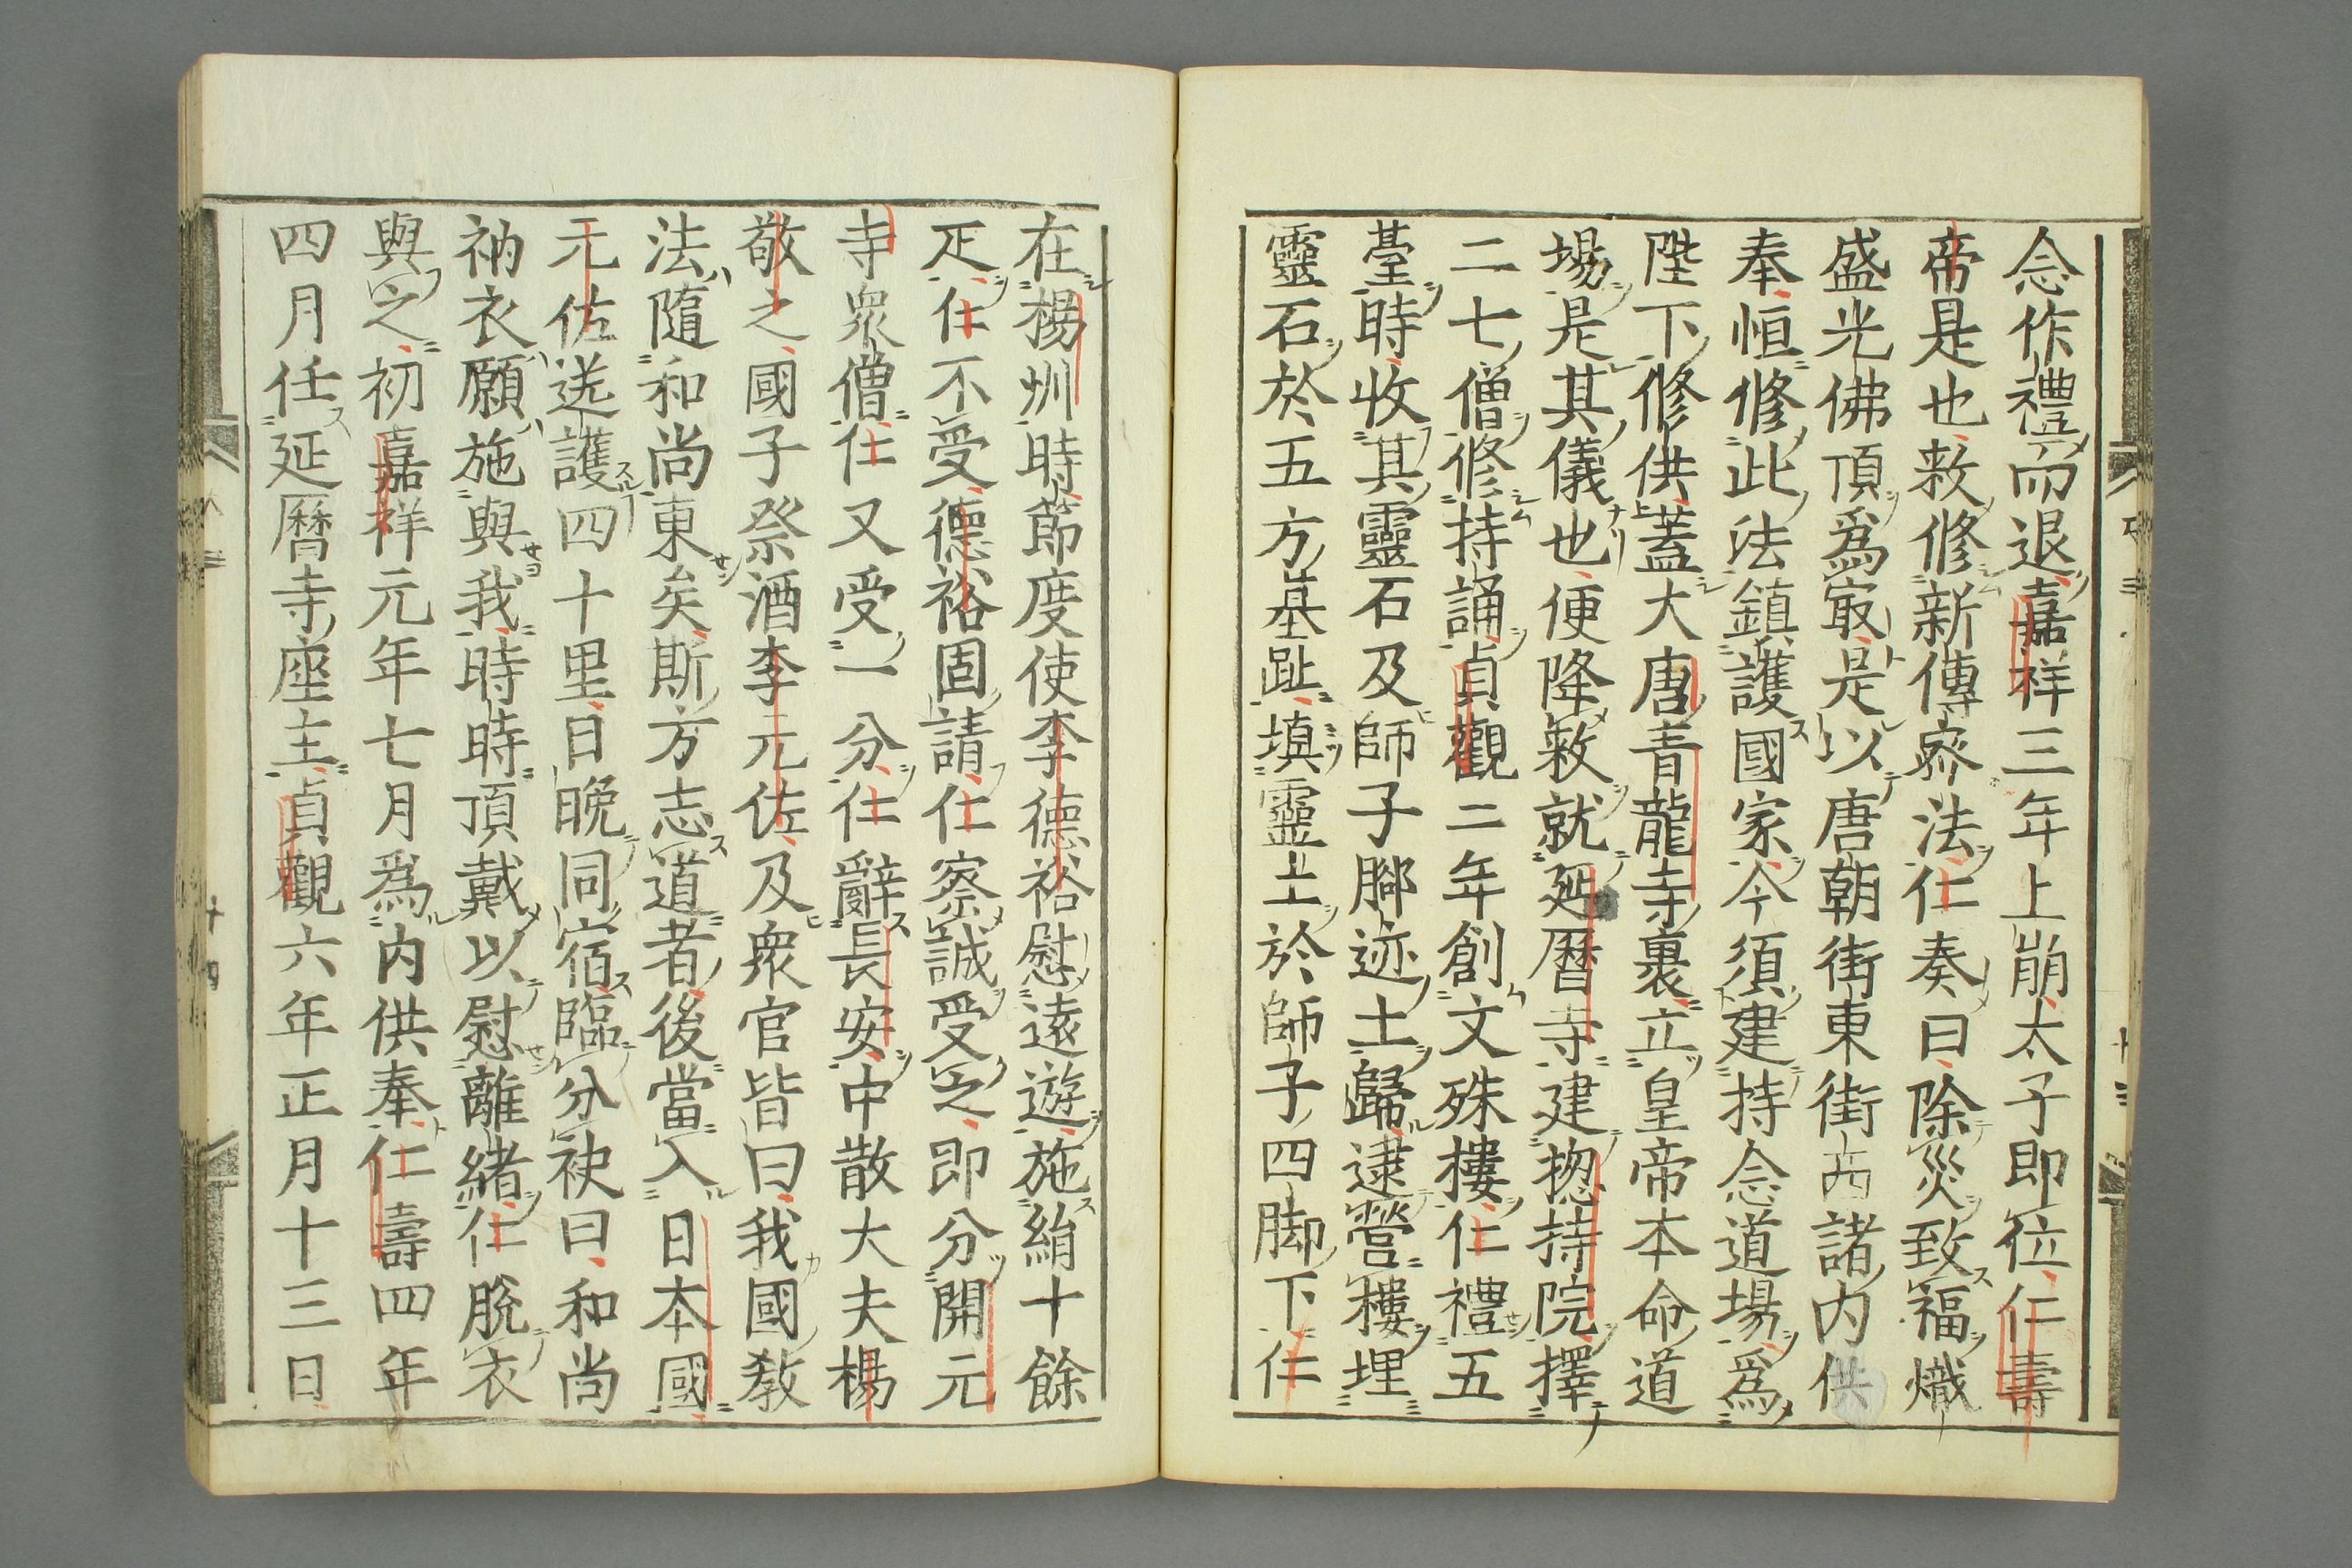 念作禮而退嘉祥三年上崩太子即位仁壽
帝是也敕修新傳密法仁奏曰除災致福熾
盛光佛頂爲㝡是以唐朝街東街西諸内供
奉恒修此法鎮護國家今須建持念道場爲
陛下修供蓋大唐青龍寺裏立皇帝本命道
場是其儀也便降敕就延曆寺建揔持院擇
二七僧修持誦貞觀二年創文殊樓仁禮五
臺時收其靈石及師子脚迹土歸逮營樓埋
靈石於五方基趾塡靈土於師子四脚下仁
在楊州時節度使李德裕慰遠遊施絹十餘
疋仁不受德裕固請仁察誠受之即分開元
寺衆僧仁又受一分仁辭長安中散大夫楊
敬之國子祭酒李元佐及衆官皆曰我國敎
法隨和尚東矣斯方志道者後當入日本國
元佐送護四十里日晚同宿臨分袂曰和尚
衲衣願施與我時時頂戴以慰離緒仁脫衣
與之初嘉祥元年七月爲内供奉仁壽四年
四月任延曆寺座主貞觀六年正月十三日